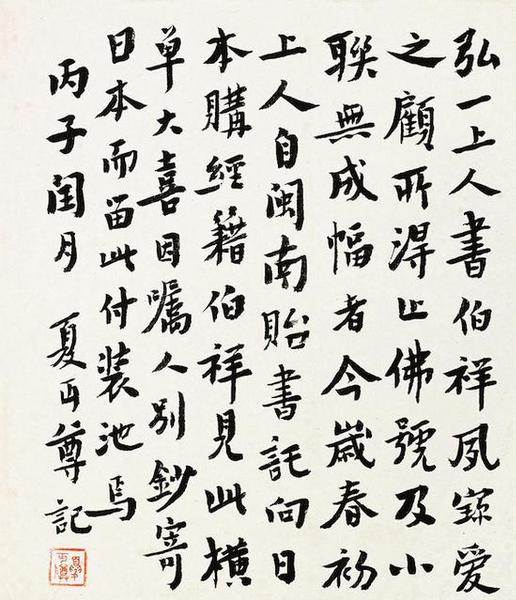 弘一上人書伯祥夙寶愛
之顧所得止佛號及小
聯無成幅者今歲春初
上人自閩南貽書託向日
本購經籍伯祥見此橫
單大喜因囑人別鈔寄
日本而留此付裝池焉
丙子閏月 夏丏尊記